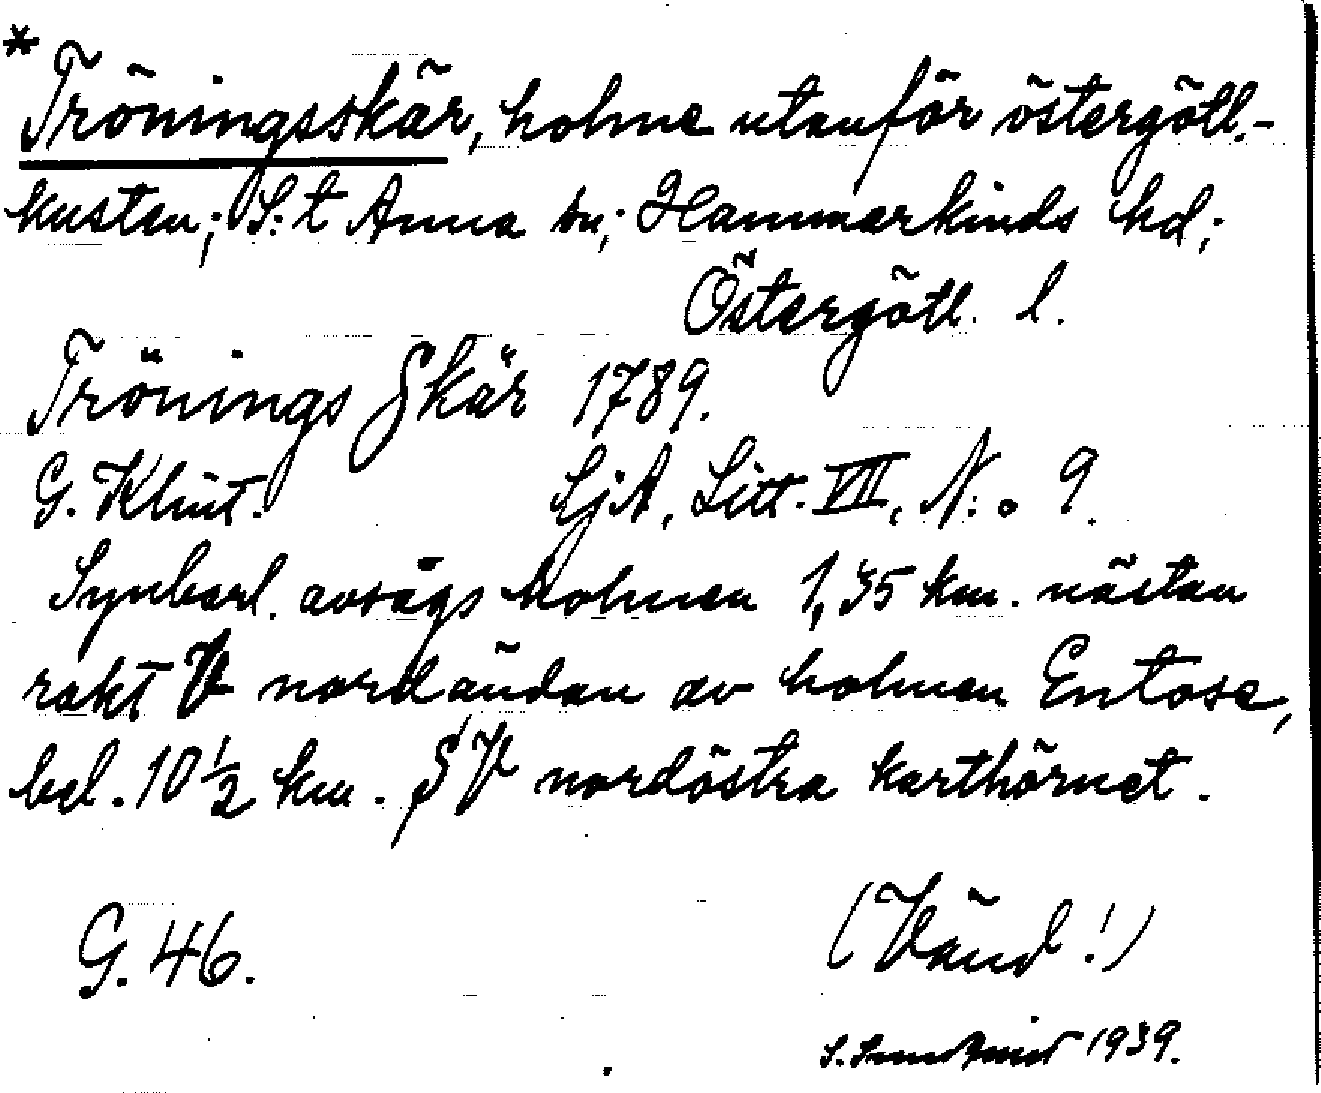 * Tröningsskär, holme utanför östergötl.-
kusten; S:t Anna sn; Hammarkinds hd;
Östergötl. l.
Trönings Skär 1789.
G. Klint. SjA, Litt. VII, N:o 9.
Synbarl. avsågs holmen 1,35 km. nästan
rakt V nordändan av holmen Entose,
bel. 10 ½ km. SV nordöstra karthörnet.
G. 46. (Vänd!)
S. 1939.